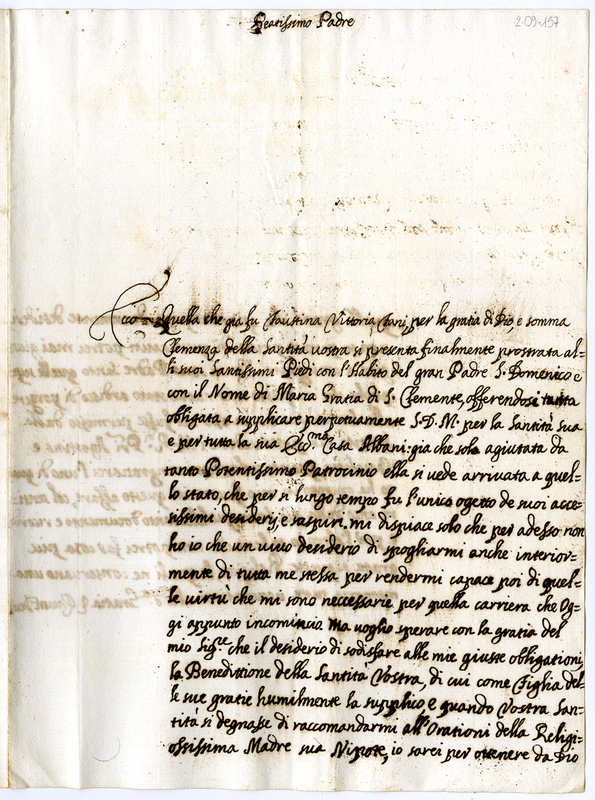 Beatissimo Padre
2-09-157
Ecco Quella che già fu Faustina Vittoria Fani, per la gratia di Dio, e somma
Clemenza della Santità vostra si presenta finalmente prostrata al=
li suoi Santissimi Piedi con l'Habito del gran Padre S. Domenico e
con il Nome di Maria Gratia di S. Clemente, offerendosi tutta
obligata a supplicare perpetuamente S.D.M. per la Santità sua
e per tutta la sua Ecc.ma Casa Albani: già che solo agiutata da
tanto Potentissimo Patrocinio ella si vede arrivata a quel=
lo stato, che per si lungo tempo fu l'unico ogetto de suoi acce=
sissimi desiderij, e sospiri. mi dispiace solo che per adesso non
ho io che un vivo desiderio di spogliarmi anche interior=
mente di tutta me stessa per rendermi capace poi di quel=
le virtù che mi sono neccessarie per quella carriera che Og=
gi appunto incomincio. Ma voglio sperare con la gratia del
mio Sig.re che il desiderio di sodisfare alle mie giuste obligationi,
la Benedittione della Santità Vostra, di cui come Figlia del=
le sue gratie humilmente la supplico, e quando Vostra San=
tità si degnasse di raccomandarmi all'Orationi della Religi=
osissima Madre sua Nipote, io sarei per ottenere da Dio